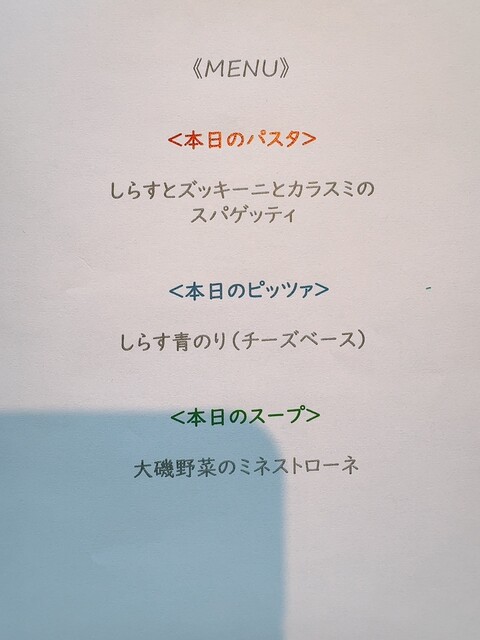 《MENU》
<本日のパスタ>
しらすとズッキーニとカラスミの
スパゲッティ
<本日のピッツァ>
しらす青のり（チーズベース）
<本日のスープ>
大磯野菜のミネストローネ